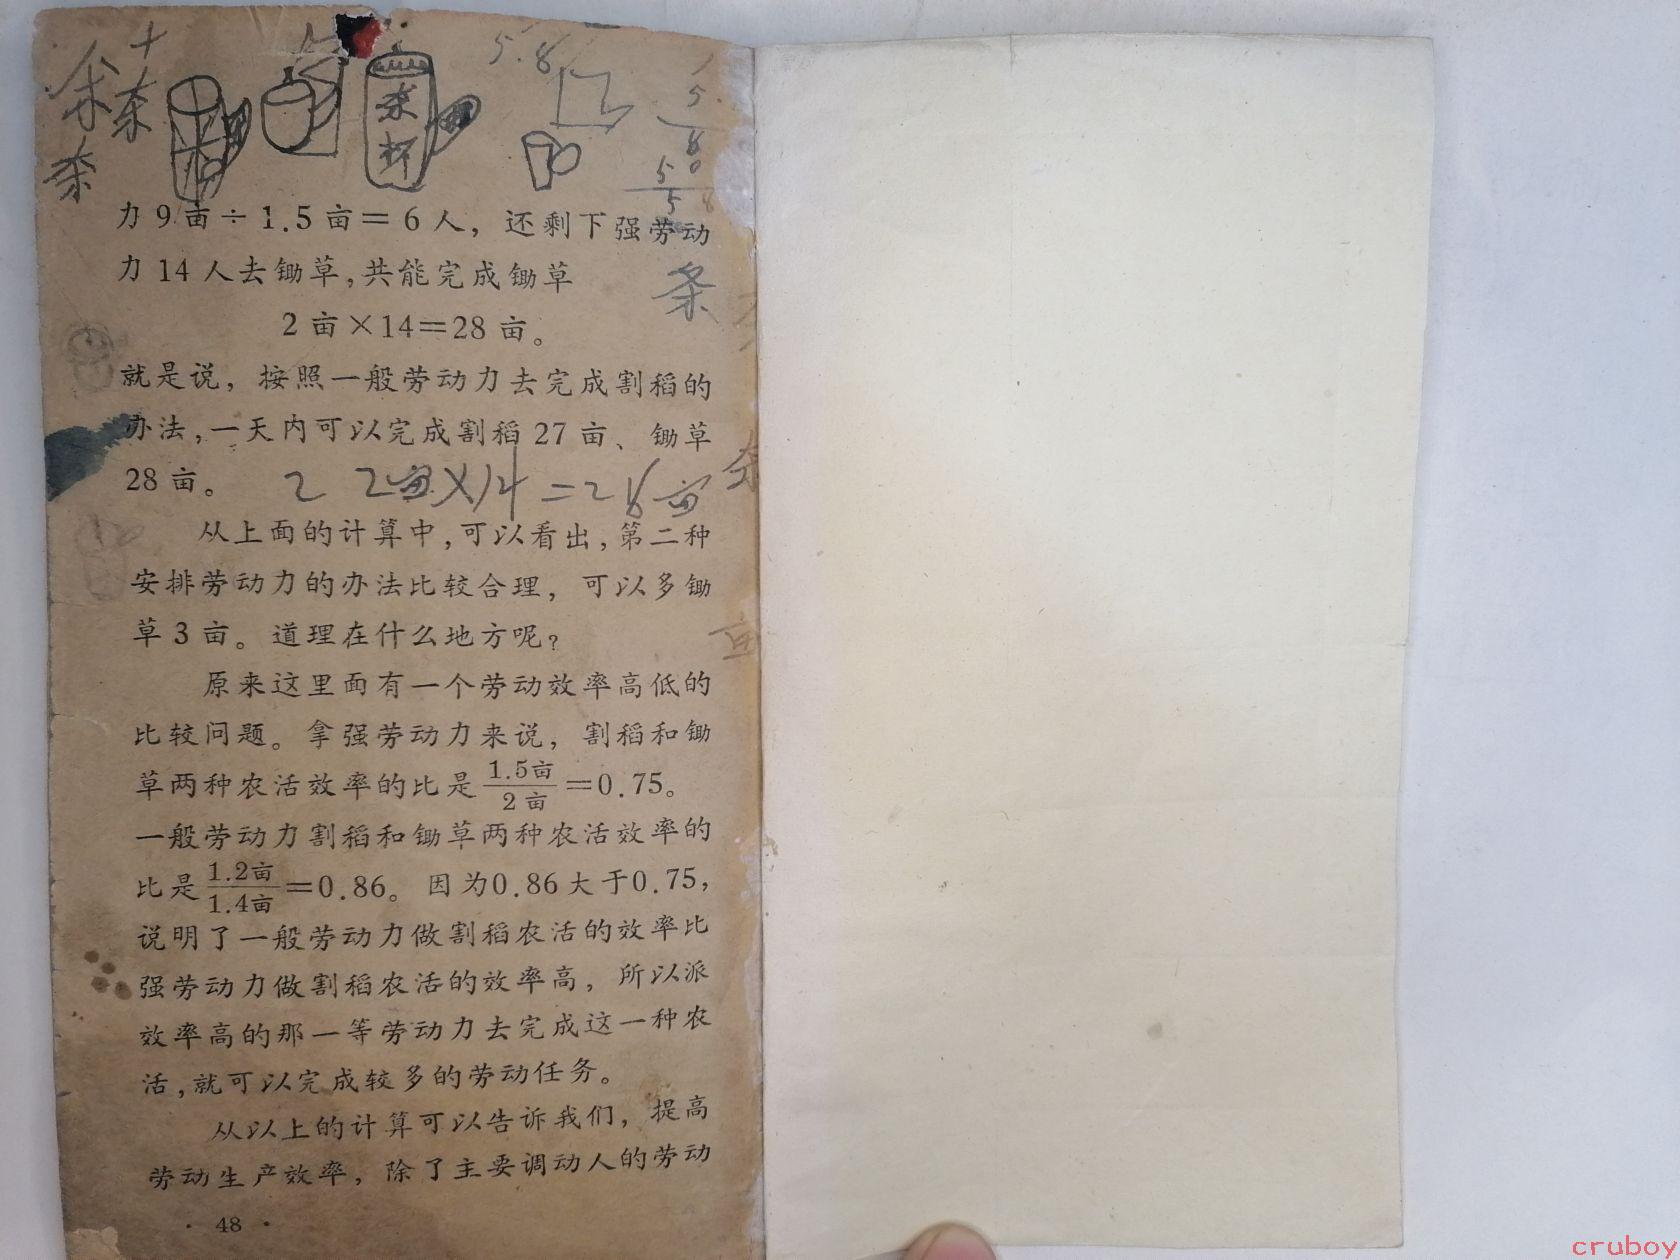 5.8
杯
力9亩÷1.5亩=6人，还剩下强劳动
力14人去锄草，共能完成锄草
2亩×14=28亩。
就是说，按照一般劳动力去完成割稻的
办法，一天内可以完成割稻27亩、锄草
28亩。
2 2亩×14=28亩
从上面的计算中，可以看出，第二种
安排劳动力的办法比较合理，可以多锄
草3亩。道理在什么地方呢？
原来这里面有一个劳动效率高低的
比较问题。拿强劳动力来说，割稻和锄
草两种农活效率的比是1.5亩/2亩=0.75。
一般劳动力割稻和锄草两种农活效率的
比是1.2亩/1.4亩=0.86。因为0.86大于0.75，
说明了一般劳动力做割稻农活的效率比
强劳动力做割稻农活的效率高，所以派
效率高的那一等劳动力去完成这一种农
活，就可以完成较多的劳动任务。
从以上的计算可以告诉我们，提高
劳动生产效率，除了主要调动人的劳动
· 48 ·
cruboy